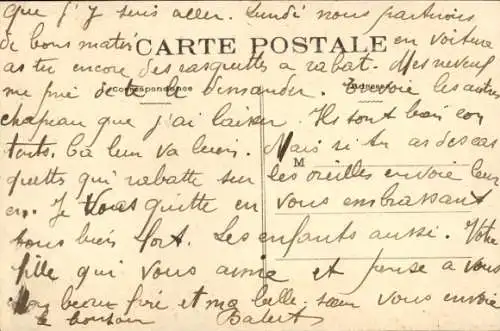 que j'y suis aller. Lundi nous partirons
de bons matin en voiture
CARTE POSTALE
as tu encore des casquettes a rabat. Mes neveux
me prie de te le demander. envoie les autres
Correspondance
Adresse
chapeau que j'ai laisser. Ils sont bien con
tents. Ca leur va bien. Mais si tu as des cas
M
quettes qui rabatte sur les oreilles envoie leur
en. Je vous quitte en vous embrassant
tous bien fort. Les enfants aussi. Votre
fille qui vous aime et pense a vous
Mon beau frère et ma belle sœur vous envoie
le bonjour